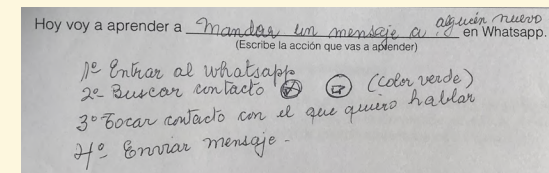 Hoy voy a aprender a mandar un mensaje a alguien nuevo en Whatsapp.
(Escribe la acción que vas a aprender)
1º Entrar al whatsapp
2º- Buscar contacto (color verde)
3º Tocar contacto con el que quiero hablar
4º- Enviar mensaje -